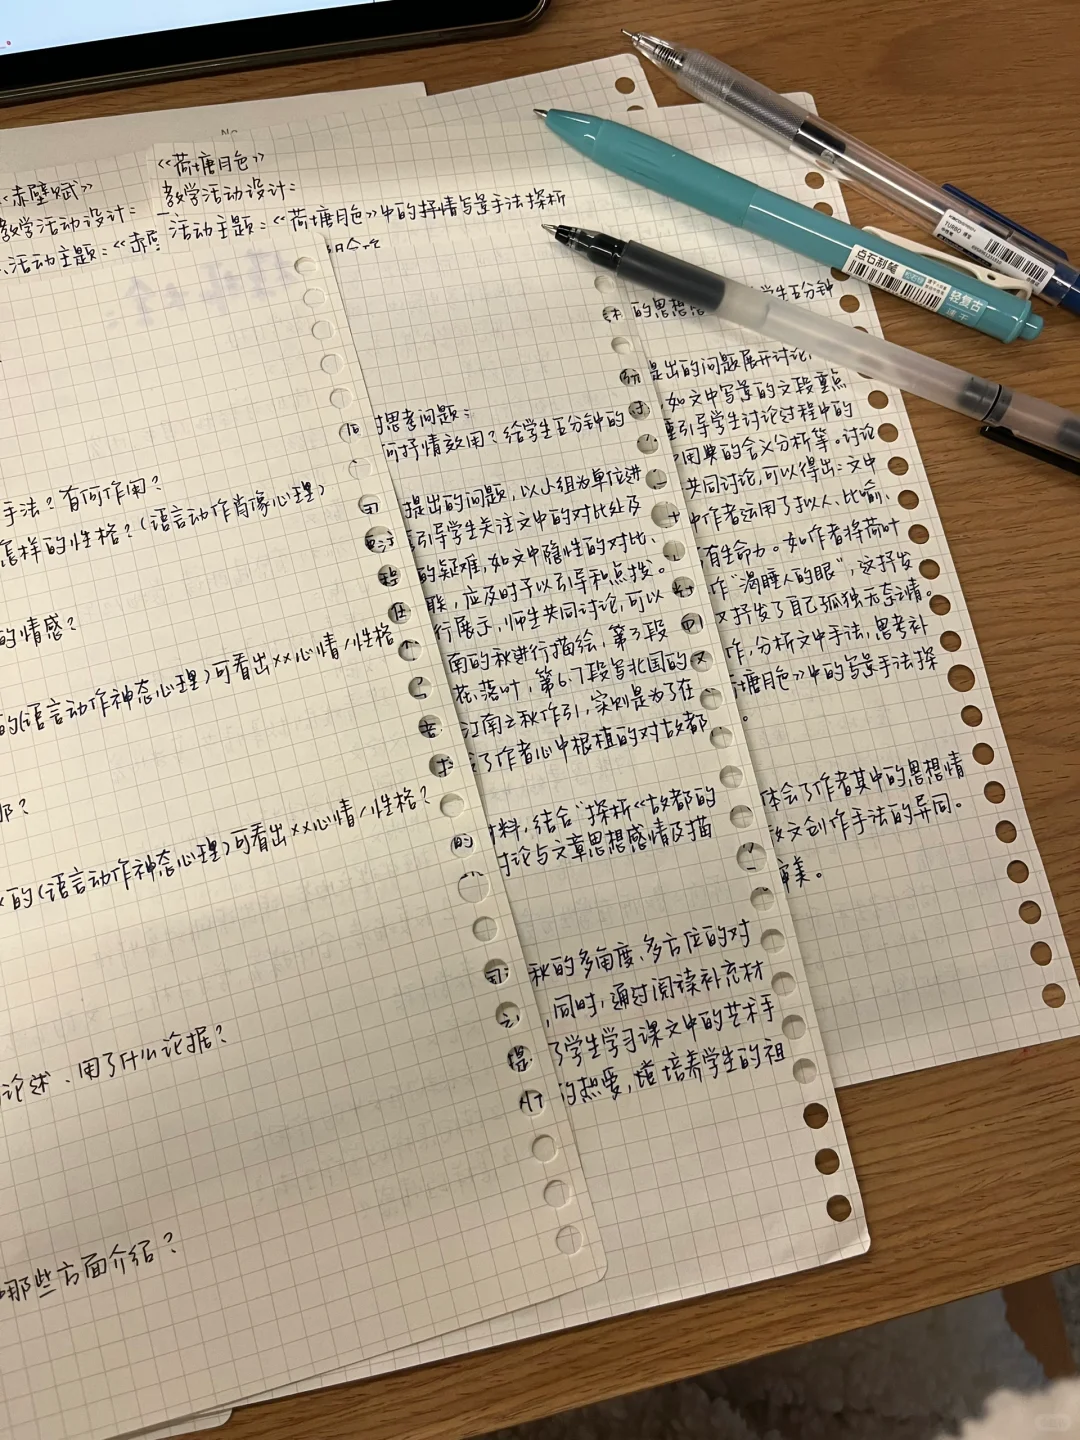 《荷塘月色》
教学活动设计：
一、活动主题：《荷塘月色》中的抒情写景手法探析
《赤壁赋》
教学活动设计：
一、活动主题：《赤壁
手法？有何作用？
怎样的性格？(语言动作肖像心理)
的情感？
的(语言动作神态心理)可看出××心情/性格
那？
×的(语言动作神态心理)可看出××心情/性格？
论述、用了什么论据？
哪些方面介绍？
思考问题：
何抒情效用？给学生五分钟的
提出的问题，以小组为单位进
引导学生关注文中的对比处及
的疑难，如文中隐性的对比、
联，应及时予以引导和点拨。
行展示，师生共同讨论，可以
南的秋进行描绘，第3段
花、落叶，第6.7段写北国的
江南之秋作引，实则是为了在
了作者心中根植的对故都
材料，结合"探析《故都的
讨论与文章思想感情及描
秋的多角度、多方位的对
，同时，通过阅读补充材
了学生学习课文中的艺术手
的热爱，培养学生的祖
的思想感
学生五分钟
提出的问题展开讨论，
如文中写景的文段重点
引导学生讨论过程中的
用典的含义分析等。讨论
共同讨论，可以得出：文中
中作者运用了拟人、比喻、
有生命力。如作者将荷叶
作"渴睡人的眼"，这抒发
又抒发了自己孤独无奈之情。
作，分析文中手法，思考补
荷塘月色》中的写景手法探
。
体会了作者其中的思想情
散文创作手法的异同。
审美。
点石制笔
轻复古
速干
TURBO